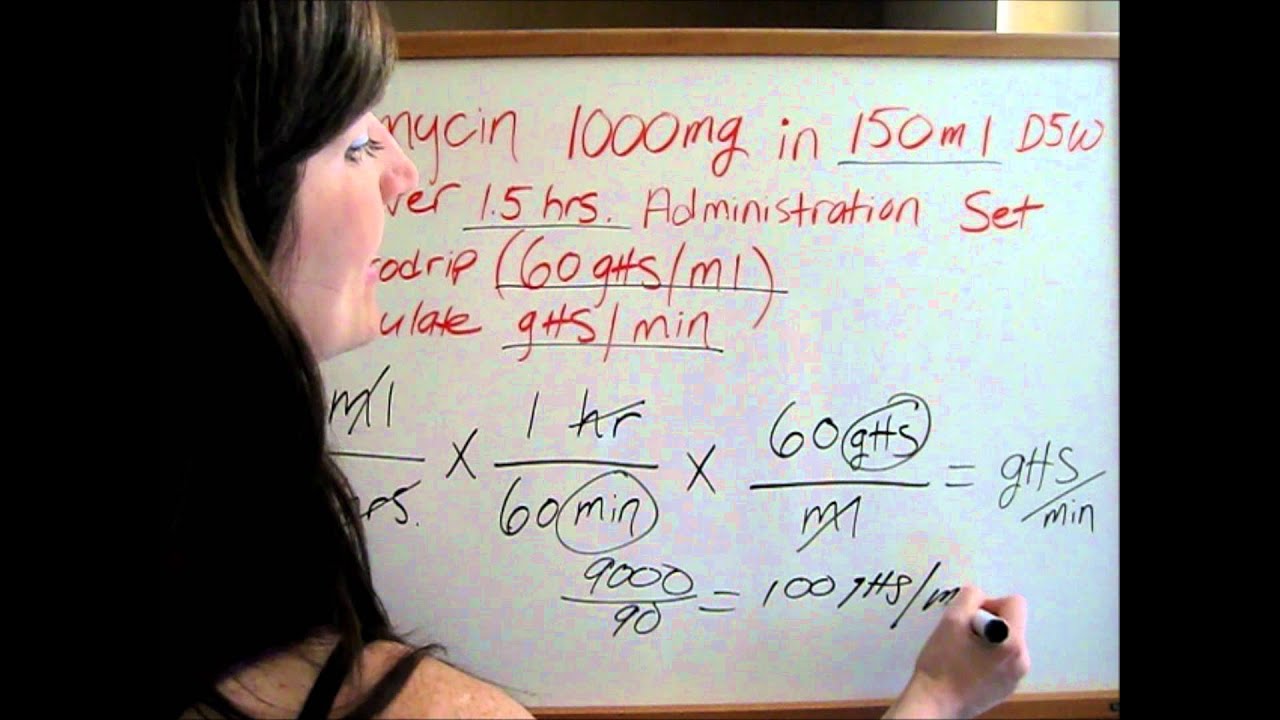 mycin 1000mg in 150ml D5W
ver 1.5 hrs. Administration Set
odrip (60 gtts/ml)
ulate gtts/min
ml × 1 hr × 60 gtts = gtts
rs. 60 min ml /min
9000 = 100 gtts/m
90